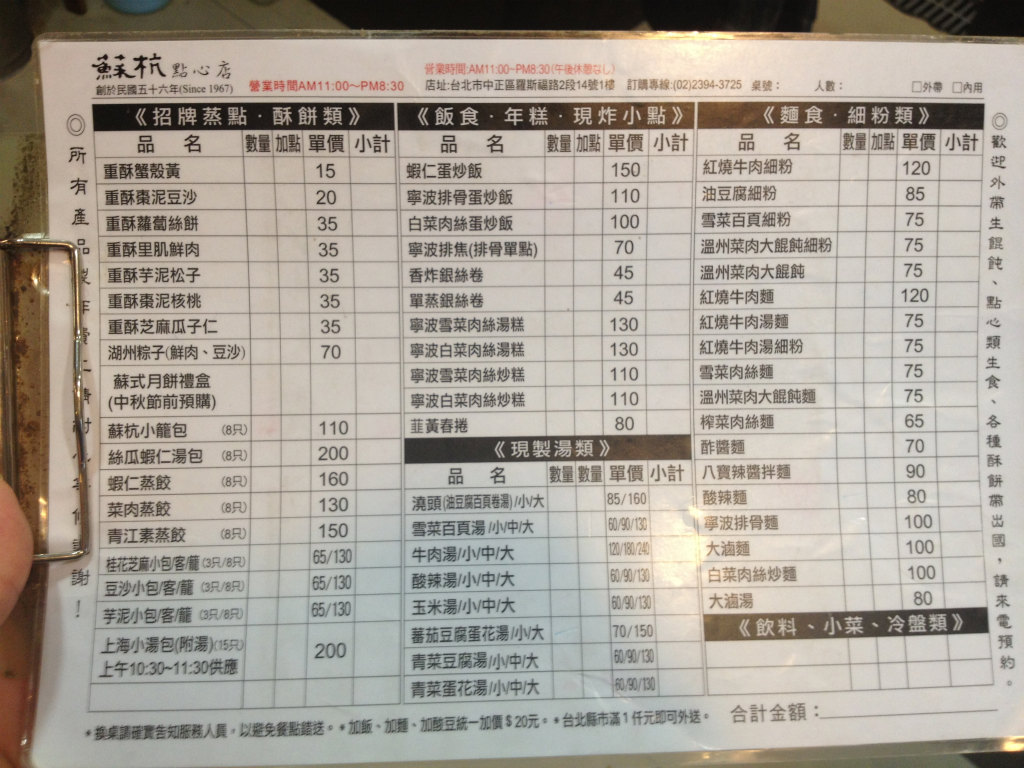 蘇杭 點心店
創於民國五十六年(Since 1967)
營業時間AM11:00~PM8:30
營業時間:AM11:00~PM8:30(午後休憩なし)
店址:台北市中正區羅斯福路2段14號1樓 訂購專線:(02)2394-3725 桌號： 人數： □外帶 □內用
◎所有產品製作費工請耐心等候謝謝！
《招牌蒸點．酥餅類》
品名 數量 加點 單價 小計
重酥蟹殼黃 15
重酥棗泥豆沙 20
重酥蘿蔔絲餅 35
重酥里肌鮮肉 35
重酥芋泥松子 35
重酥棗泥核桃 35
重酥芝麻瓜子仁 35
湖州粽子(鮮肉、豆沙) 70
蘇式月餅禮盒
(中秋節前預購)
蘇杭小籠包 (8只) 110
絲瓜蝦仁湯包 (8只) 200
蝦仁蒸餃 (8只) 160
菜肉蒸餃 (8只) 130
青江素蒸餃 (8只) 150
桂花芝麻小包/客/籠 (3只/8只) 65/130
豆沙小包/客/籠 (3只/8只) 65/130
芋泥小包/客/籠 (3只/8只) 65/130
上海小湯包(附湯)(15只) 200
上午10:30~11:30供應
《飯食．年糕．現炸小點》
品名 數量 加點 單價 小計
蝦仁蛋炒飯 150
寧波排骨蛋炒飯 110
白菜肉絲蛋炒飯 100
寧波排焦(排骨單點) 70
香炸銀絲卷 45
單蒸銀絲卷 45
寧波雪菜肉絲湯糕 130
寧波白菜肉絲湯糕 130
寧波雪菜肉絲炒糕 110
寧波白菜肉絲炒糕 110
韮黃春捲 80
《現製湯類》
品名 數量 數量 單價 小計
澆頭(油豆腐百頁卷湯)/小/大 85/160
雪菜百頁湯/小/中/大 60/90/130
牛肉湯/小/中/大 120/180/240
酸辣湯/小/中/大 60/90/130
玉米湯/小/中/大 60/90/130
蕃茄豆腐蛋花湯/小/大 70/150
青菜豆腐湯/小/中/大 60/90/130
青菜蛋花湯/小/中/大 60/90/130
《麵食．細粉類》
品名 數量 加點 單價 小計
紅燒牛肉細粉 120
油豆腐細粉 85
雪菜百頁細粉 75
溫州菜肉大餛飩細粉 75
溫州菜肉大餛飩 75
紅燒牛肉麵 120
紅燒牛肉湯麵 75
紅燒牛肉湯細粉 75
雪菜肉絲麵 75
溫州菜肉大餛飩麵 75
榨菜肉絲麵 65
酢醬麵 70
八寶辣醬拌麵 90
酸辣麵 80
寧波排骨麵 100
大滷麵 100
白菜肉絲炒麵 100
大滷湯 80
《飲料、小菜、冷盤類》
◎歡迎外帶生餛飩、點心類生食、各種酥餅帶出國，請來電預約。
＊換桌請確實告知服務人員，以避免餐點錯送。＊加飯、加麵、加酸豆統一加價＄20元。＊台北縣市滿1仟元即可外送。
合計金額：